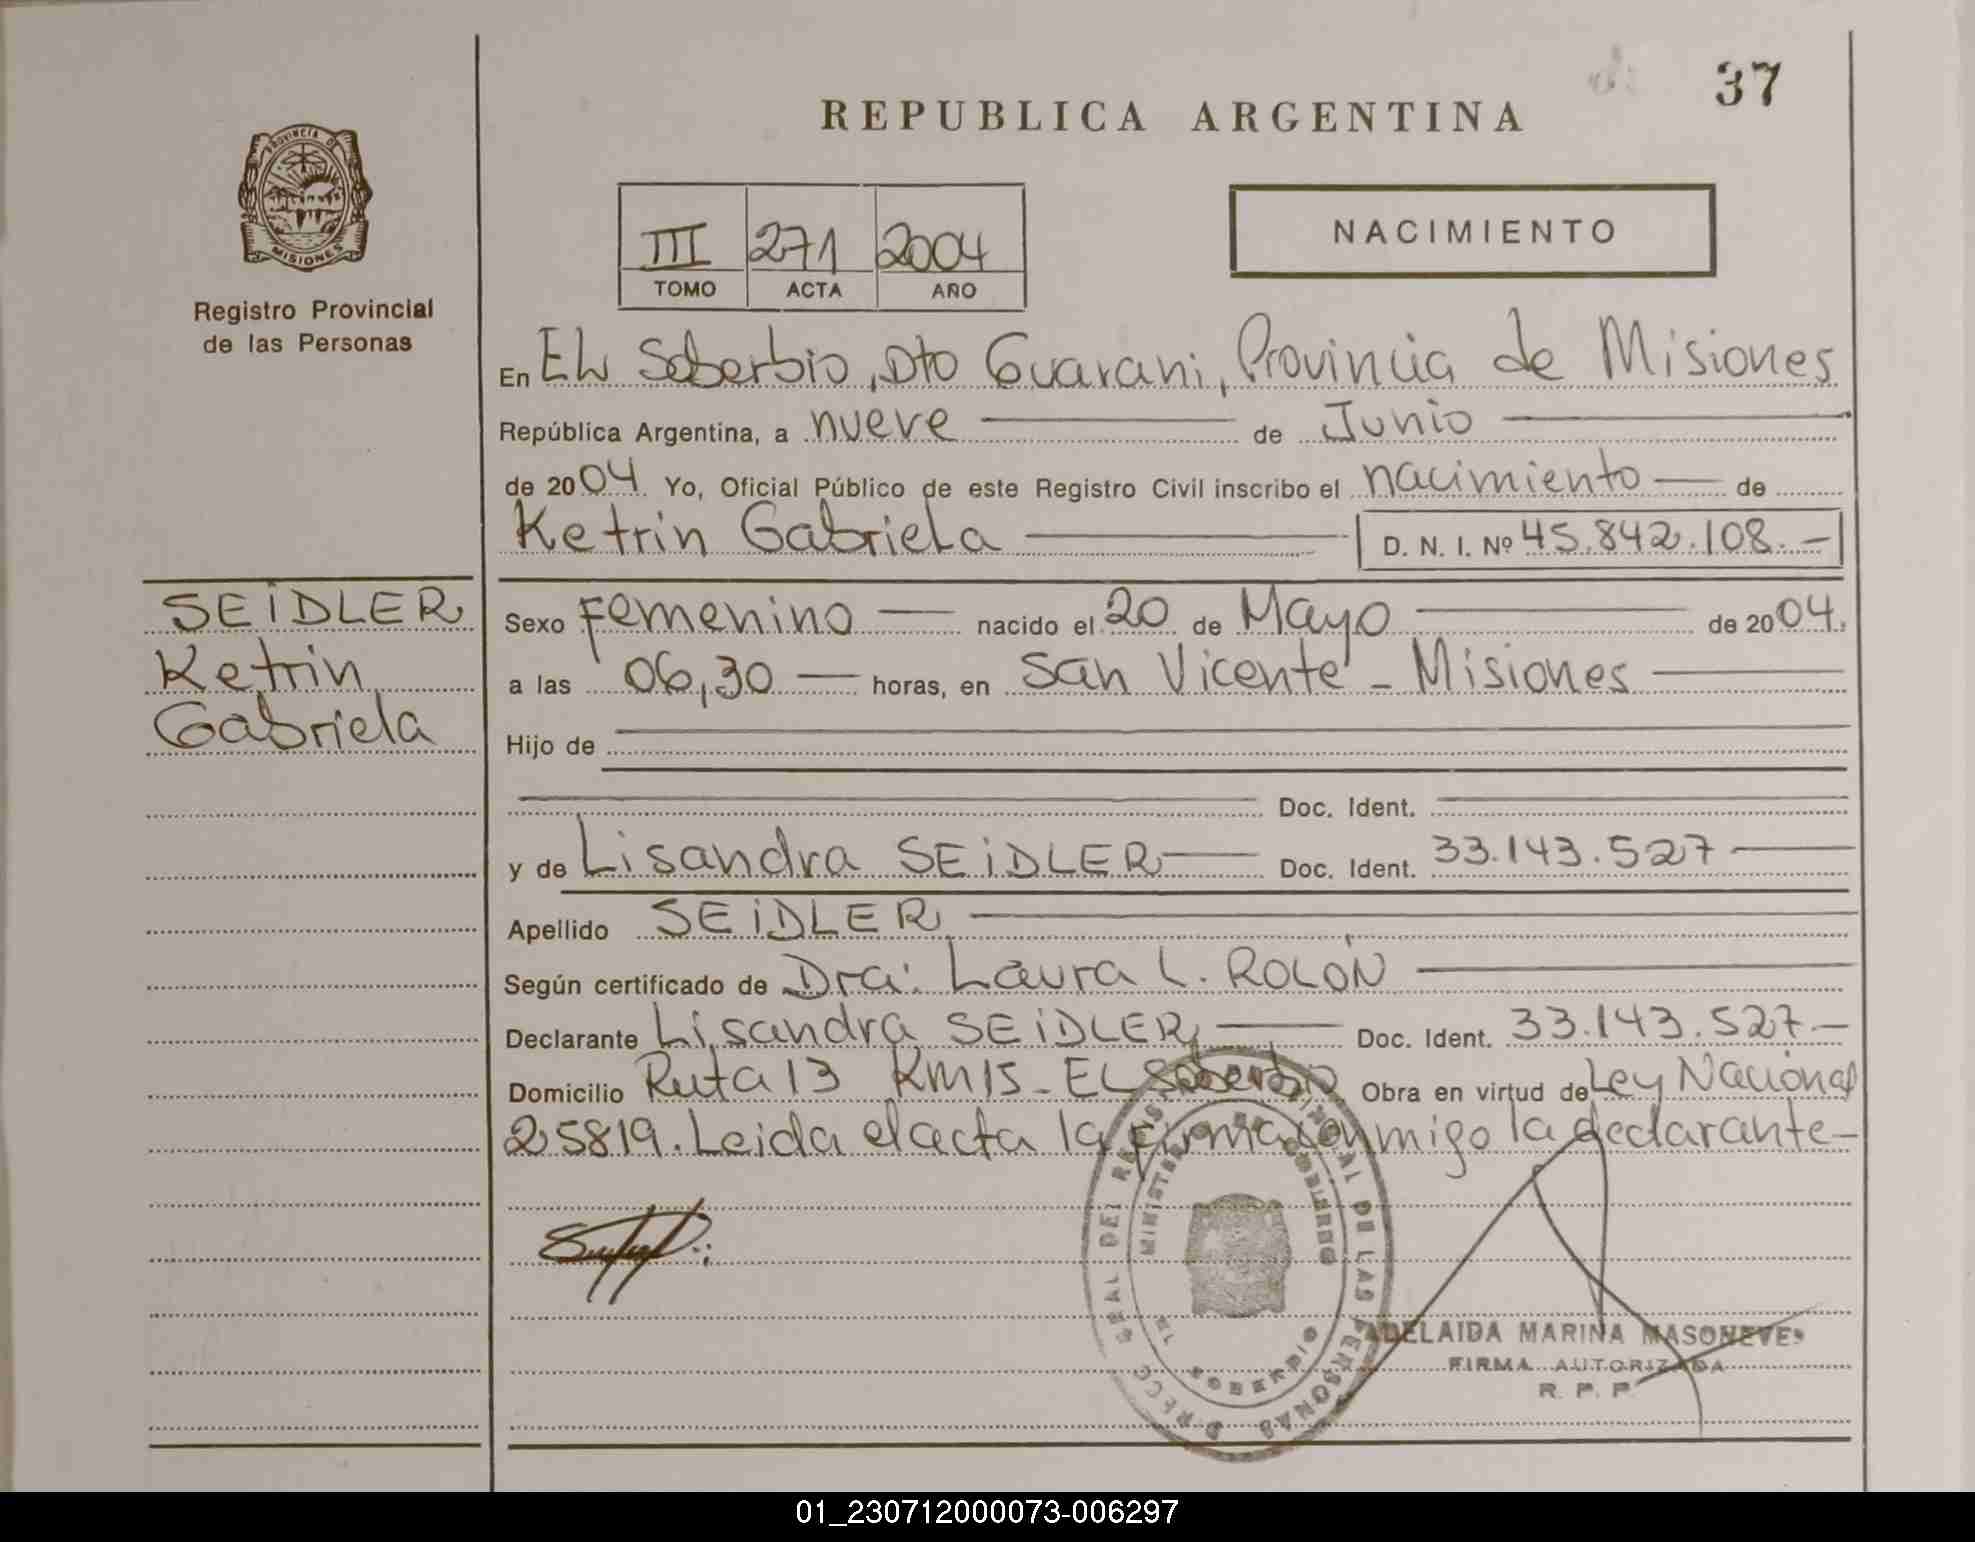 37
REPUBLICA ARGENTINA
PROVINCIA DE
MISIONES
Registro Provincial
de las Personas
III 271 2004
TOMO ACTA AÑO
NACIMIENTO
En EL Soberbio, Dto Guarani, Provincia de Misiones
República Argentina, a nueve de Junio
de 2004 Yo, Oficial Público de este Registro Civil inscribo el nacimiento de
Ketrin Gabriela D. N. I. Nº 45.842.108.-
SEIDLER
Ketrin
Gabriela
Sexo Femenino nacido el 20 de Mayo de 2004.
a las 06,30 horas, en San Vicente - Misiones
Hijo de
Doc. Ident.
y de Lisandra SEIDLER Doc. Ident. 33.143.527
Apellido SEIDLER
Según certificado de Dra: Laura L. ROLÓN
Declarante Lisandra SEIDLER Doc. Ident. 33.143.527-
Domicilio Ruta 13 KM15- EL Soberbio Obra en virtud de Ley Nacional
25819. Leida el acta la firma conmigo la declarante-
MINISTERIO DE GOBIERNO
GRAL DEL REG. PROVINCIAL DE LAS PERSONAS
SOBERBIO
ADELAIDA MARINA MASONEVES
FIRMA AUTORIZADA
R. P. P
01_230712000073-006297